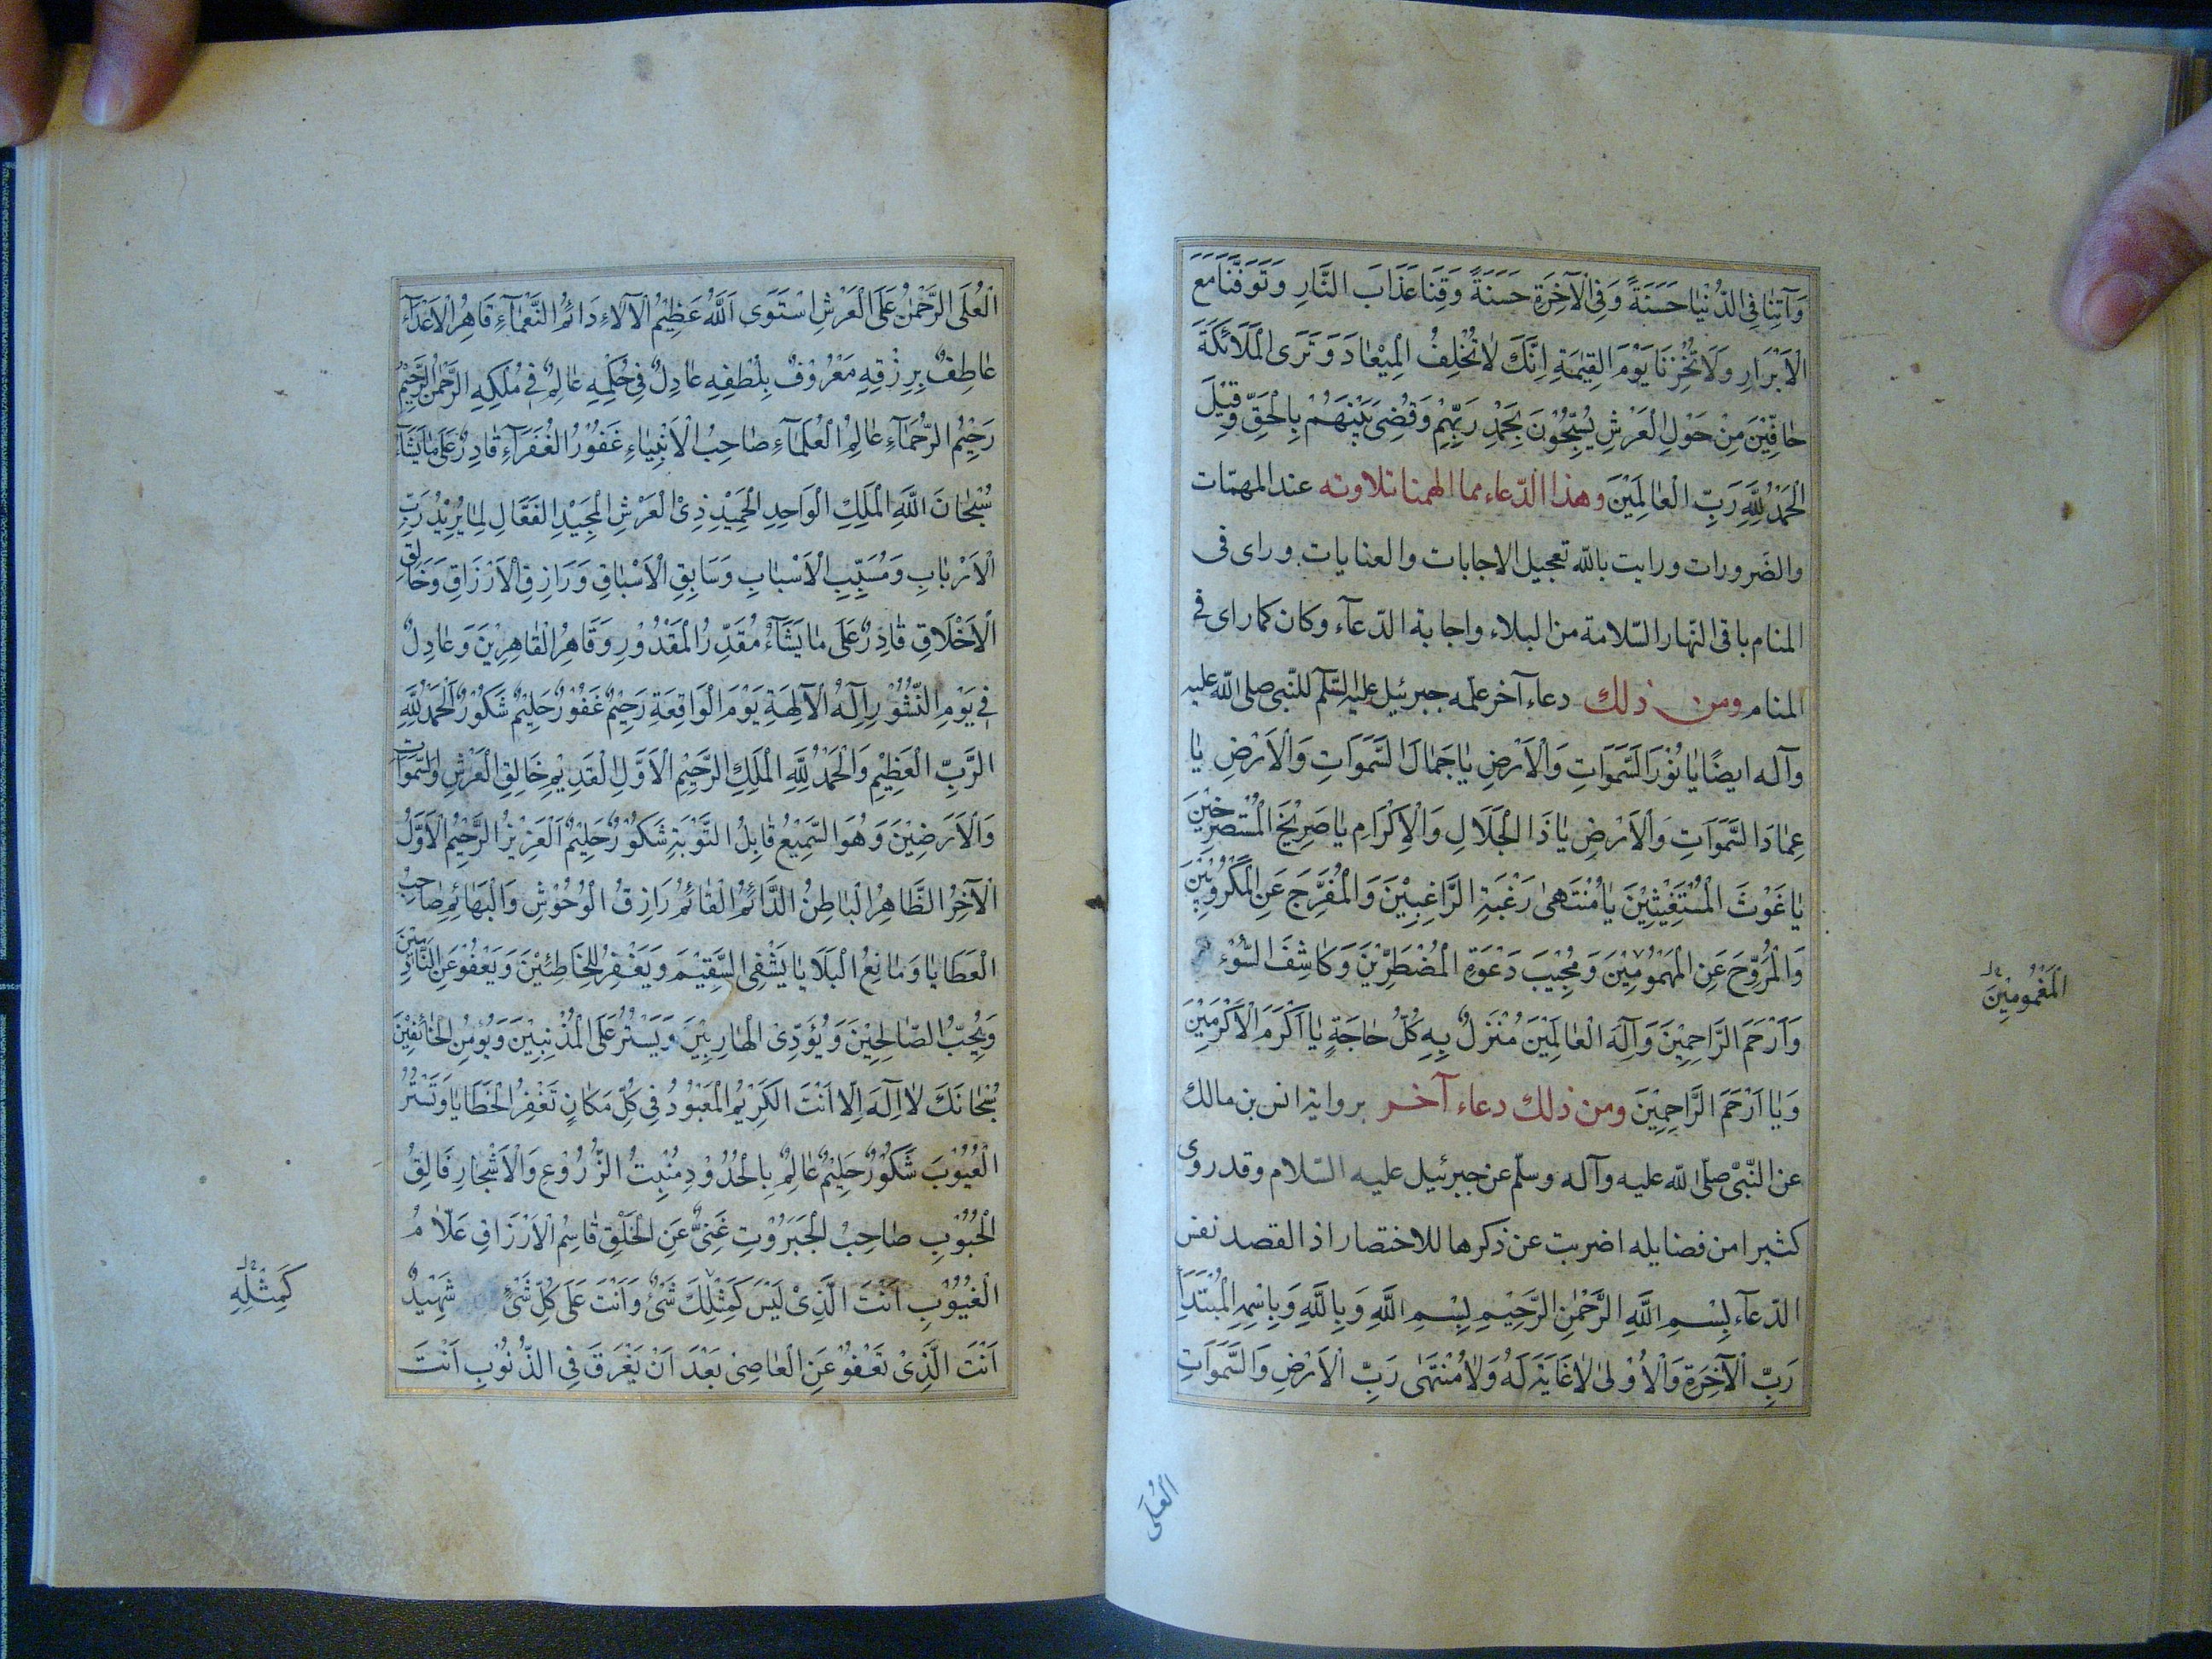 وَآتِنٰا فِي الدُّنْيٰا حَسَنَةً وَفِي الْآخِرَةِ حَسَنَةً وَقِنٰا عَذٰابَ النّٰارِ وَتَوَفَّنٰا مَعَ
الْاَبْرٰارِ وَلَا تُخْزِنٰا يَوْمَ الْقِيٰمَةِ اِنَّكَ لٰا تُخْلِفُ الْمِيْعٰادَ وَتَرَى الْمَلٰائِكَةَ
حٰافِّيْنَ مِنْ حَوْلِ الْعَرْشِ يُسَبِّحُوْنَ بِحَمْدِ رَبِّهِمْ وَقُضِىَ بَيْنَهُمْ بِالْحَقِّ وَقِيْلَ
الْحَمْدُ لِلّٰهِ رَبِّ الْعٰالَمِيْنَ وهذا الدّعاء مما الهمنا تلاوته عند المهمّات
والضّرورات ورايت بالله تعجيل الاجابات والعنايات وراى فى
المنام باقى النّهار السّلامة من البلاء واجابة الدّعآء وكان كما راى فى
المنام ومن ذلك دعاء آخر علّمه جبرئيل عليه السّلم للنّبى صلى الله عليه
وآله ايضًا يٰا نُوْرَ السَّمَوٰاتِ وَالْاَرْضِ يٰا جَمٰالَ السَّمَوٰاتِ وَالْاَرْضِ يٰا
عِمٰادَ السَّمَوٰاتِ وَالْاَرْضِ يٰا ذَا الْجَلٰالِ وَالْاِكْرٰامِ يٰا صَرِيْخَ الْمُسْتَصْرِخِيْنَ
يٰا غَوْثَ الْمُسْتَغِيْثِيْنَ يٰا مُنْتَهىٰ رَغْبَةِ الرَّاغِبِيْنَ وَالْمُفَرِّجَ عَنِ الْمَكْرُوْبِيْنَ
وَالْمُرَوِّحَ عَنِ الْمَهْمُوْمِيْنَ وَمُجِيْبَ دَعْوَةِ الْمُضْطَرِّيْنَ وَكٰاشِفَ السُّوْءِ
الْمَغْمُومِيْنَ
وَاَرْحَمَ الرَّاحِمِيْنَ وَاِلٰهَ الْعٰالَمِيْنَ مُنْزَلٌ بِهِ كُلُّ حٰاجَةٍ يٰا اَكْرَمَ الْاَكْرَمِيْنَ
وَيٰا اَرْحَمَ الرَّاحِمِيْنَ ومن ذلك دعاء آخر برواية انس بن مالك
عن النَّبِىّ صلّى الله عليه وآله وسلّم عن جبرئيل عليه السّلام وقد روى
كثيرا من فضايله اضربت عن ذكرها للاختصار اذ القصد نفس
الدّعآء بِسْمِ اللّٰهِ الرَّحْمٰنِ الرَّحِيْمِ بِسْمِ اللّٰهِ وَبِاللّٰهِ وَبِاسْمِهِ الْمُبْتَدَأِ
رَبِّ الْآخِرَةِ وَالْاُوْلىٰ لٰا غٰايَةَ لَهُ وَلٰا مُنْتَهٰى رَبِّ الْاَرْضِ وَالسَّمَوٰاتِ
الْعُلَى
الْعُلَى الرَّحْمٰنُ عَلَى الْعَرْشِ اسْتَوٰى اَللّٰهُ عَظِيْمُ الْآلٰاءِ دٰائِمُ النَّعْمٰآءِ قٰاهِرُ الْاَعْدٰآءِ
عٰاطِفٌ بِرِزْقِهِ مَعْرُوْفٌ بِلُطْفِهِ عٰادِلٌ فِى حُكْمِهِ عٰالِمٌ فِى مُلْكِهِ الرَّحْمٰنُ الرَّحِيْمُ
رَحِيْمُ الرُّحَمٰآءِ عٰالِمُ الْعُلَمٰآءِ صٰاحِبُ الْاَنْبِيٰاءِ غَفُوْرُ الْغُفَرٰآءِ قٰادِرٌ عَلىٰ مٰا يَشٰآءُ
سُبْحٰانَ اللّٰهِ الْمَلِكِ الْوٰاحِدِ الْحَمِيْدِ ذِى الْعَرْشِ الْمَجِيْدِ الْفَعّٰالِ لِمٰا يُرِيْدُ رَبِّ
الْاَرْبٰابِ وَمُسَبِّبِ الْاَسْبٰابِ وَسٰابِقِ الْاَسْبٰاقِ وَرٰازِقِ الْاَرْزٰاقِ وَخٰالِقِ
الْاَخْلٰاقِ قٰادِرٌ عَلىٰ مٰا يَشٰآءُ مُقَدِّرُ الْمَقْدُوْرِ وَقٰاهِرُ الْقٰاهِرِيْنَ وَعٰادِلٌ
فِى يَوْمِ النُّشُوْرِ اِلٰهُ الْآلِهَةِ يَوْمَ الْوٰاقِعَةِ رَحِيْمٌ غَفُوْرٌ حَلِيْمٌ شَكُوْرٌ اَلْحَمْدُ لِلّٰهِ
الرَّبِّ الْعَظِيْمِ وَالْحَمْدُ لِلّٰهِ الْمَلِكِ الرَّحِيْمِ الْاَوَّلِ الْقَدِيْمِ خٰالِقِ الْعَرْشِ وَالسَّمَوٰاتِ
وَالْاَرَضِيْنَ وَهُوَ السَّمِيْعُ قٰابِلُ التَّوْبَةِ شَكُوْرٌ حَلِيْمٌ اَلْعَزِيْزُ الرَّحِيْمُ الْاَوَّلُ
الْآخِرُ الظَّاهِرُ الْبٰاطِنُ الدَّائِمُ الْقٰائِمُ رٰازِقُ الْوُحُوْشِ وَالْبَهٰائِمِ صٰاحِبُ
الْعَطٰايٰا وَمٰانِعُ الْبَلٰايٰا يَشْفِى السَّقِيْمَ وَيَغْفِرُ لِلْخٰاطِئِيْنَ وَيَعْفُوْ عَنِ النّٰادِمِيْنَ
وَيُحِبُّ الصّٰالِحِيْنَ وَيُؤَدِّى الْهٰارِبِيْنَ وَيَسْتُرُ عَلَى الْمُذْنِبِيْنَ وَيُؤْمِنُ الْخٰائِفِيْنَ
سُبْحٰانَكَ لٰا اِلٰهَ اِلّٰا اَنْتَ الْكَرِيْمُ الْمَعْبُوْدُ فِى كُلِّ مَكٰانٍ تَغْفِرُ الْخَطٰايٰا وَتَسْتُرُ
الْعُيُوْبَ شَكُوْرٌ حَلِيْمٌ عٰالِمٌ بِالْحُدُوْدِ مُنْبِتُ الزُّرُوْعِ وَالْاَشْجٰارِ فٰالِقُ
الْحُبُوْبِ صٰاحِبُ الْجَبَرُوْتِ غَنِىٌّ عَنِ الْخَلْقِ قٰاسِمُ الْاَرْزٰاقِ عَلّٰامُ
الْغُيُوْبِ اَنْتَ الَّذِىْ لَيْسَ كَمِثْلِكَ شَىْءٌ وَاَنْتَ عَلىٰ كُلِّ شَىْءٍ شَهِيْدٌ
كَمِثْلِهِ
اَنْتَ الَّذِىْ تَعْفُوْ عَنِ الْعٰاصِى بَعْدَ اَنْ يَغْرَقَ فِى الذُّنُوْبِ اَنْتَ